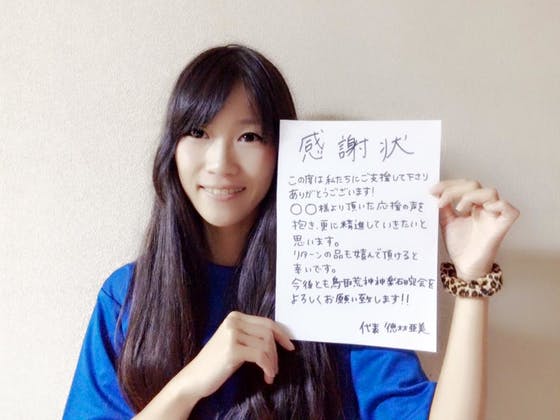 感謝状
この度は私たちにご支援して下さり
ありがとうございます!
○○様より頂いた応援の声を
抱き、更に精進していきたいと
思います。
リターンの品も喜んで頂けると
幸いです。
今後とも鳥取荒神神楽研究会を
よろしくお願い致します!!
代表 徳林亜美